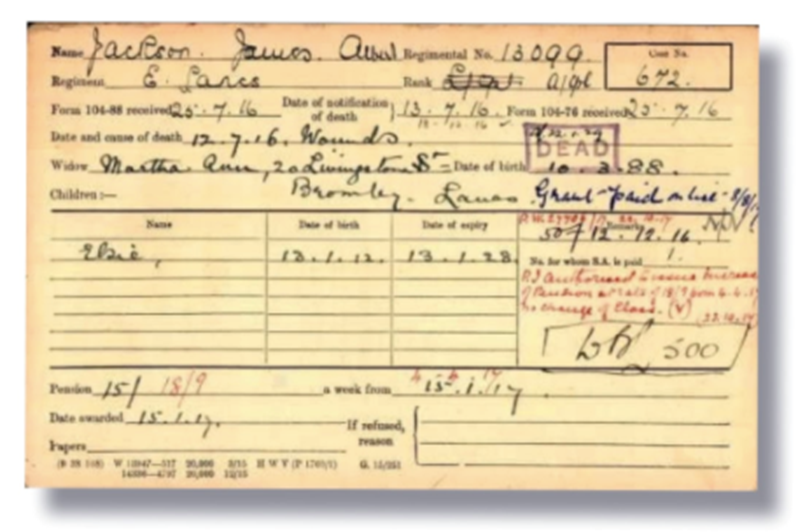 Name Jackson. James. Albert Regimental No. 13099. Case No.
Regiment E. Lancs Rank L/Cpl A/Cpl 672.
Form 104-88 received 25.7.16 Date of notification of death } 13.7.16. Form 104-76 received 25.7.16
Date and cause of death 12.7.16. Wounds.
DEAD
Widow Martha Ann, 20 Livingstone St = Date of birth 10.3.88.
Children:— Bromley. Lancs Grant paid
Name Date of birth Date of expiry Remarks
50/ 12.12.16.
Elsie, 13.1.12. 13.1.28. No. for whom S.A. is paid 1.
R.I authorised & issued Increase
of Pension at rate of 18/9 from 4.4.17
no change of Class. (V)
(22.10.17)
500
Pension 15/ 18/9 a week from 15.1.17.
4 4 17
Date awarded 15.1.17. If refused, reason
Papers
20,000 H W V
20,000